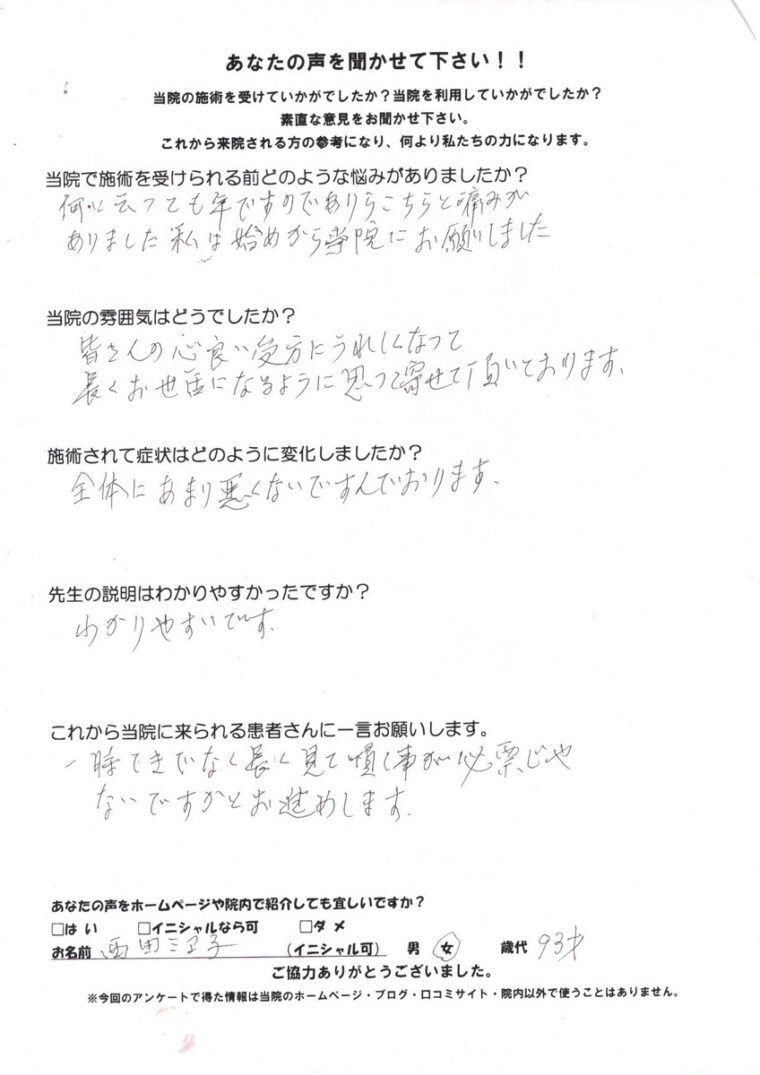 あなたの声を聞かせて下さい！！
当院の施術を受けていかがでしたか？当院を利用していかがでしたか？
素直な意見をお聞かせ下さい。
これから来院される方の参考になり、何より私たちの力になります。
当院で施術を受けられる前どのような悩みがありましたか？
何に云っても年ですのでありらこちらと痛みが
ありました 私は始めから学院にお願いしました
当院の雰囲気はどうでしたか？
皆さんの心良い受方にうれしくなって
長くお世話になるように思って寄せて頂いております。
施術されて症状はどのように変化しましたか？
全体にあまり悪くないですんでおります。
先生の説明はわかりやすかったですか？
わかりやすいです。
これから当院に来られる患者さんに一言お願いします。
一時てきでなく長く見て頂く事が必票じや
ないですかとお進めします。
あなたの声をホームページや院内で紹介しても宜しいですか？
□はい □イニシャルなら可 □ダメ
お名前 西田 子 （イニシャル可） 男 女 歳代 93才
ご協力ありがとうございました。
※今回のアンケートで得た情報は当院のホームページ・ブログ・口コミサイト・院内以外で使うことはありません。